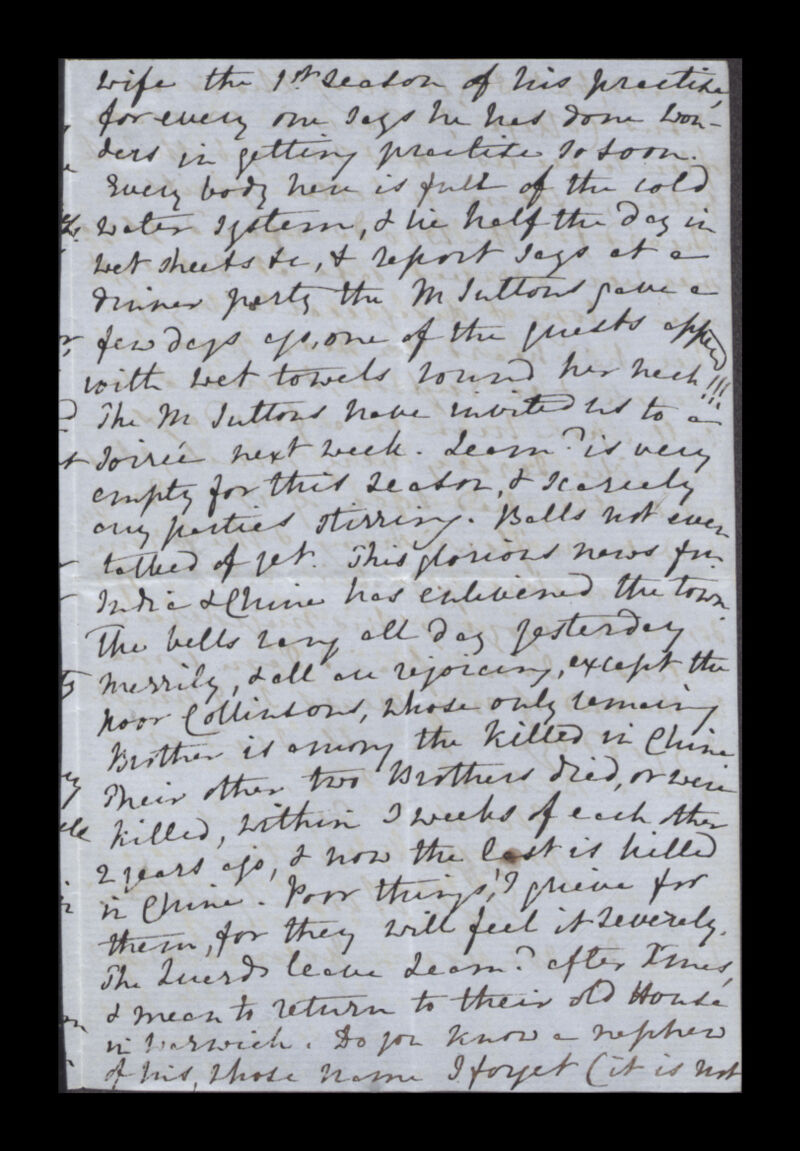 wife the 1st season of his practise,
for every one says he has done won-
ders in getting practise so soon.
Every body here is full of the cold
water system, & lie half the day in
wet sheets &c, & report says at a
dinner party the M Suttons gave a
few days ago, one of the guests appeed
with wet towels round her neck!!!
The M Suttons have invited us to a
soirée next week. Leamn is very
empty for this season, & scarcely
any parties stirring. Balls not even
talked of yet. This glorious news fm
India & China has enlivened the town
The bells rang all day yesterday
merrily, & all are rejoicing, except the
poor Collinsons, whose only remaing
Brother is among the killed in China
Their other two Brothers died, or were
killed, within 3 weeks of each other
2 years ago, & now the last is killed
in China. Poor things! I grieve for
them, for they will feel it severely.
The leave Leamn after Xmas,
& mean to return to their old House
in Warwick. Do you know a nephew
of his, whose name I forget (it is not